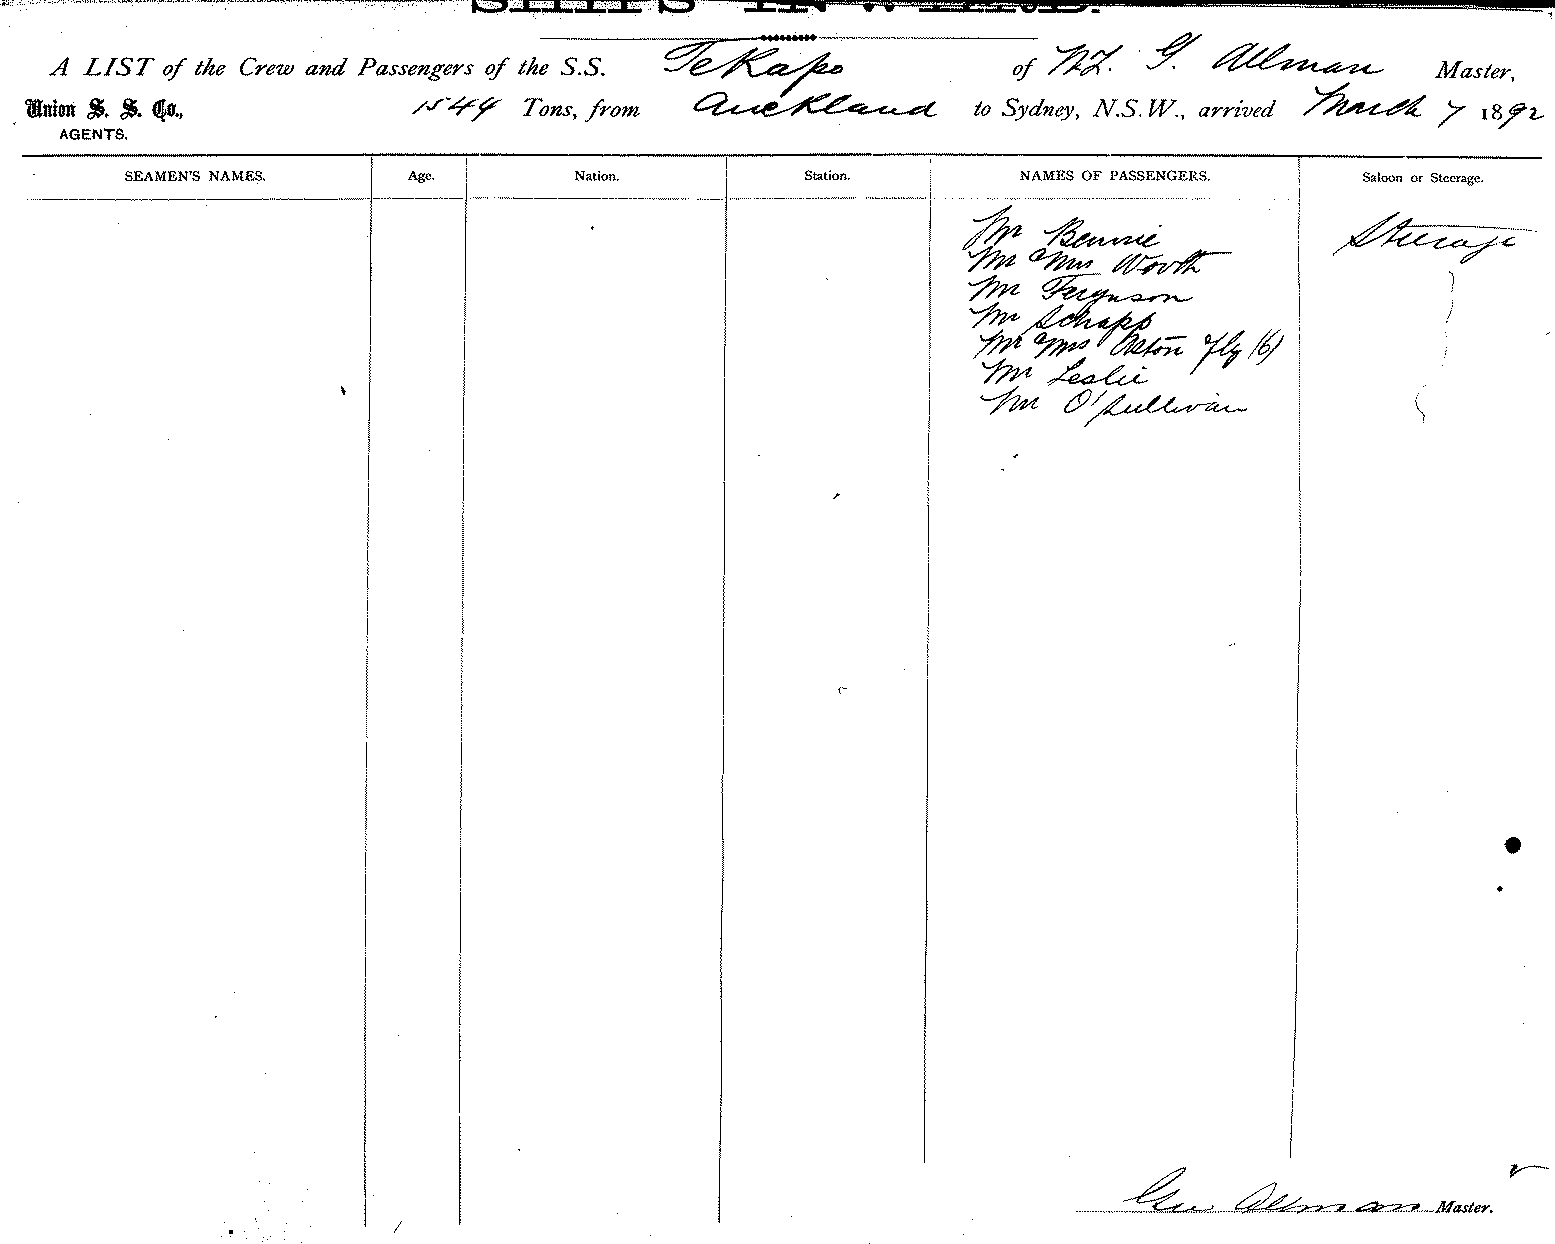 A LIST of the Crew and Passengers of the S.S. Tekapo of N.Z. G. Allman Master,
Union S. S. Co., 1544 Tons, from Auckland to Sydney, N.S.W., arrived March 7 1892
AGENTS.
SEAMEN'S NAMES. Age. Nation. Station. NAMES OF PASSENGERS. Saloon or Steerage.
Mr Bennie Steerage
Mr Mrs Worth
Mr Ferguson
Mr Schapp
Mr Mrs Aston fly (6)
Mr Leslie
Mr O'Sullivan
Geo Allman Master.